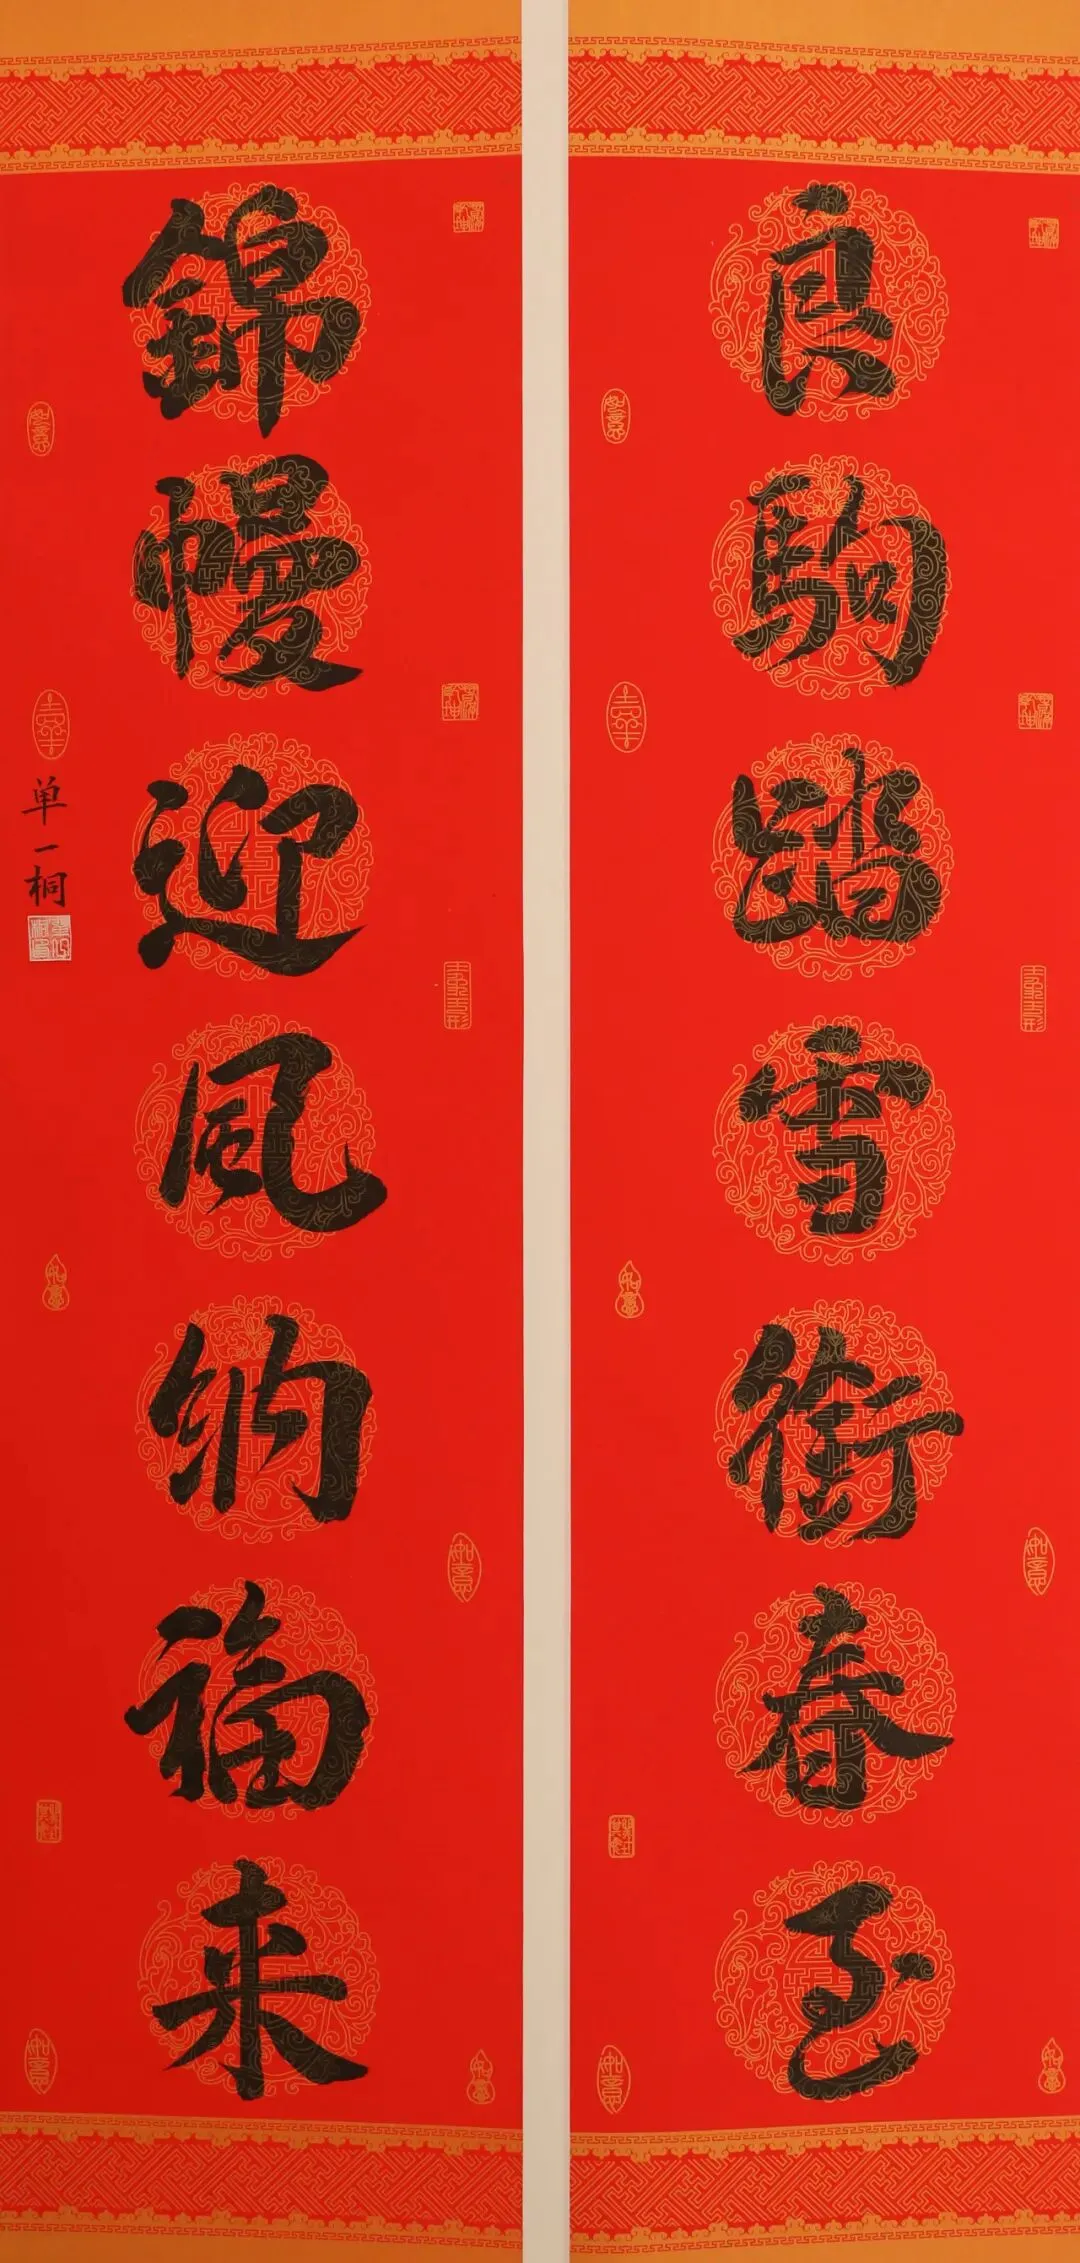 良駒踏雪銜春至
錦幔迎風納福来
单一桐